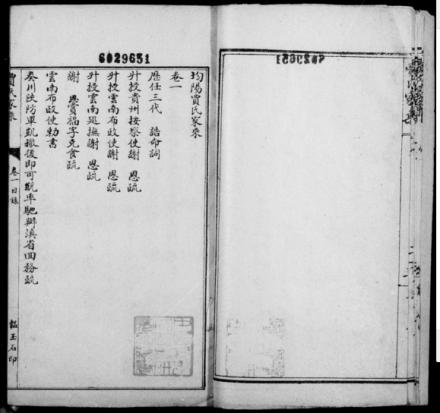 6029651
均陽賈氏家乘
卷一
歷任三代　誥命詞
升授貴州按察使謝　恩疏
升授雲南布政使謝　恩疏
升授雲南巡撫謝　恩疏
謝　恩賞福字克食疏
雲南布政使勅書
奏川陝防軍凱撤後即可馳辦滇省回務疏
賈氏家乘
卷一目錄
石印
6029651